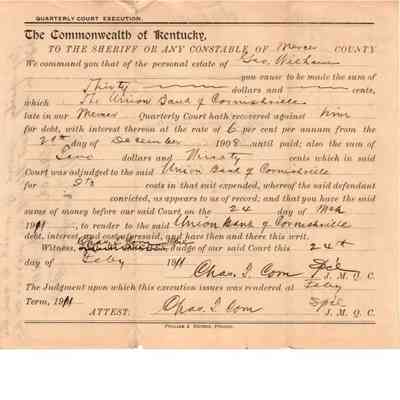 QUARTERLY COURT EXECUTION.
The Commonwealth of Kentucky,
TO THE SHERIFF OR ANY CONSTABLE OF Mercer COUNTY
We command you that of the personal estate of Geo.
you cause to be made the sum of
Thirty dollars and cents,
which The Union Bank of Cornishville
late in our Mercer Quarterly Court hath recovered against him
for debt, with interest thereon at the rate of 6 per cent per annum from the
day of December 1908 until paid; also the sum of
dollars and Thirty cents which in said
Court was adjudged to the said Union Bank of Cornishville
for its costs in that suit expended, whereof the said defendant
convicted, as appears to us of record; and that you have the said
sums of money before our said Court on the 24 day of Mch
1911, to render to the said Union Bank of Cornishville
debt, interest and cost aforesaid, and have then and there this writ.
Witness, Judge of our said Court this 24th
day of Feby 1911
Chas. I. Corn Spcl J. M. Q. C.
The Judgment upon which this execution issues was rendered at Feby
Term, 1911 Chas. I. Corn Spcl
ATTEST: J. M. Q. C.